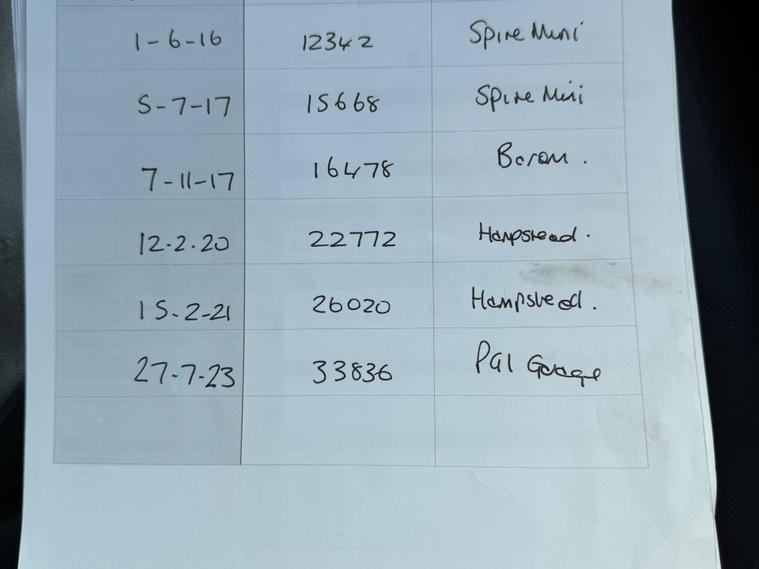 1-6-16 12342 Spire Mini
5-7-17 15668 Spire Mini
7-11-17 16478
12.2.20 22772 Hampstead.
15.2-21 26020 Hampstead.
27-7-23 33836 Garage